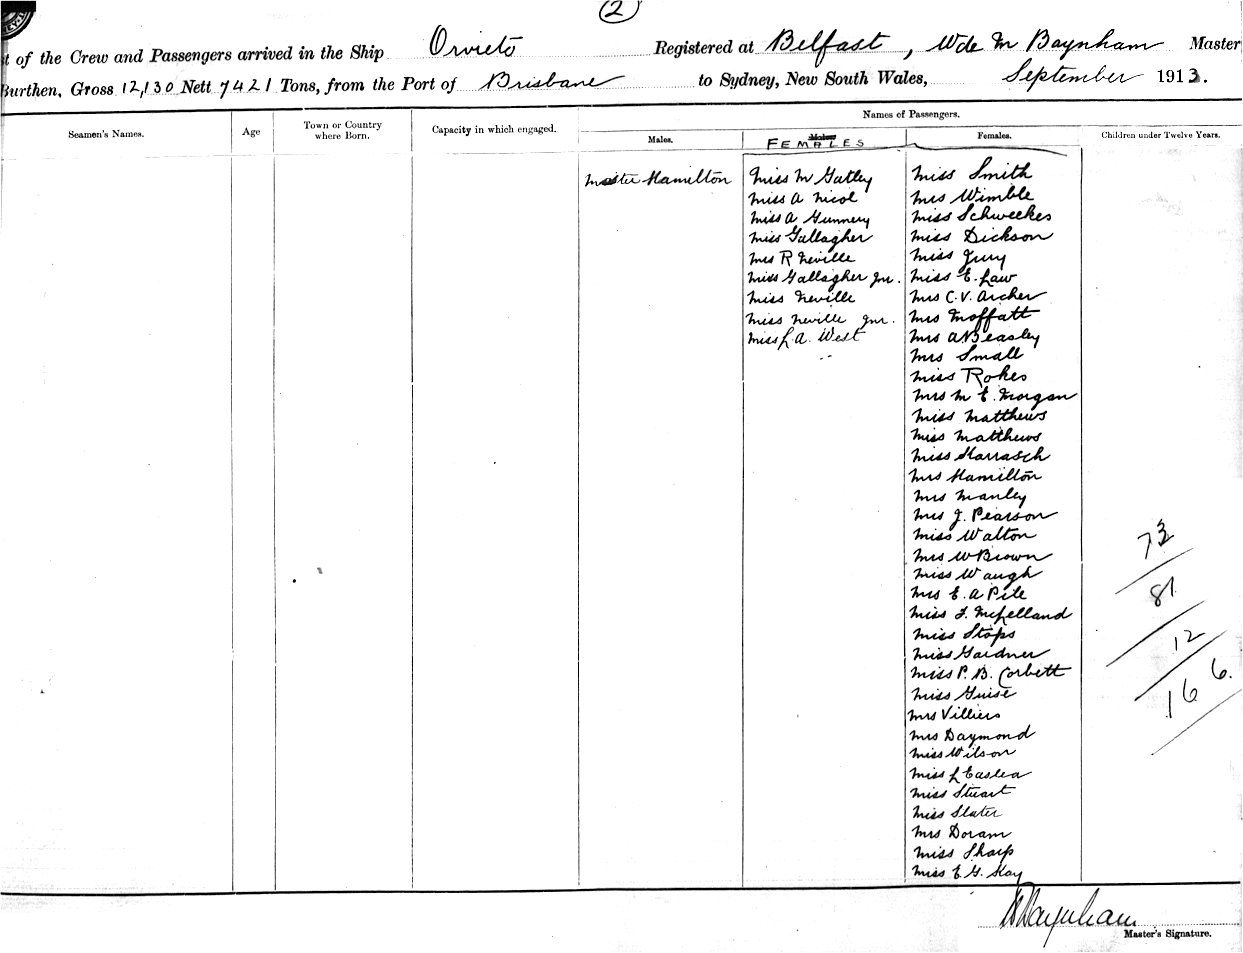 2
t of the Crew and Passengers arrived in the Ship Orvieto Registered at Belfast, Wde M Baynham Master
Burthen, Gross 12,130 Nett 7421 Tons, from the Port of Brisbane to Sydney, New South Wales, September 1913.
Names of Passengers.
Seamen's Names. Age Town or Country where Born. Capacity in which engaged. Males. FEMALES Females. Children under Twelve Years.
Master Hamilton
Miss M Gatley
Miss A Nicol
Miss A Gunnery
Miss Gallagher
Mrs R Neville
Miss Gallagher Jnr.
Miss Neville
Miss Neville Jnr.
Miss L. A. West
Miss Smith
Mrs Wimble
Miss Schweekes
Miss Dickson
Miss Jury
Miss E. Law
Mrs C. V. Archer
Mrs Moffatt
Mrs A Beasley
Mrs Small
Miss Rokes
Mrs M E. Morgan
Miss Matthews
Miss Matthews
Miss Harrasch
Mrs Hamilton
Mrs Manley
Mrs J. Pearson
Miss Walton
Mrs W Brown
Miss Waugh
Mrs E. A Pile
Miss J. McLelland
Miss Stops
Miss Gardner
Miss P. B. Corbett
Miss Guise
Mrs Villiers
Mrs Daymond
Miss Wilson
Miss L Easlea
Miss Stuart
Miss Slater
Mrs Doram
Miss Sharp
Miss E. G. Hay
73
81
12
16 6.
W Baynham
Master's Signature.